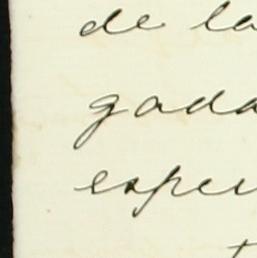 de la
gada
espe